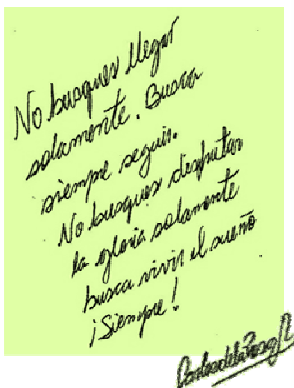 No busques llegar
solamente. Busca
siempre seguir.
No busques desfrutar
la gloria solamente
busca vivir el sueño
¡Siempre!
Carlos de la Rosa